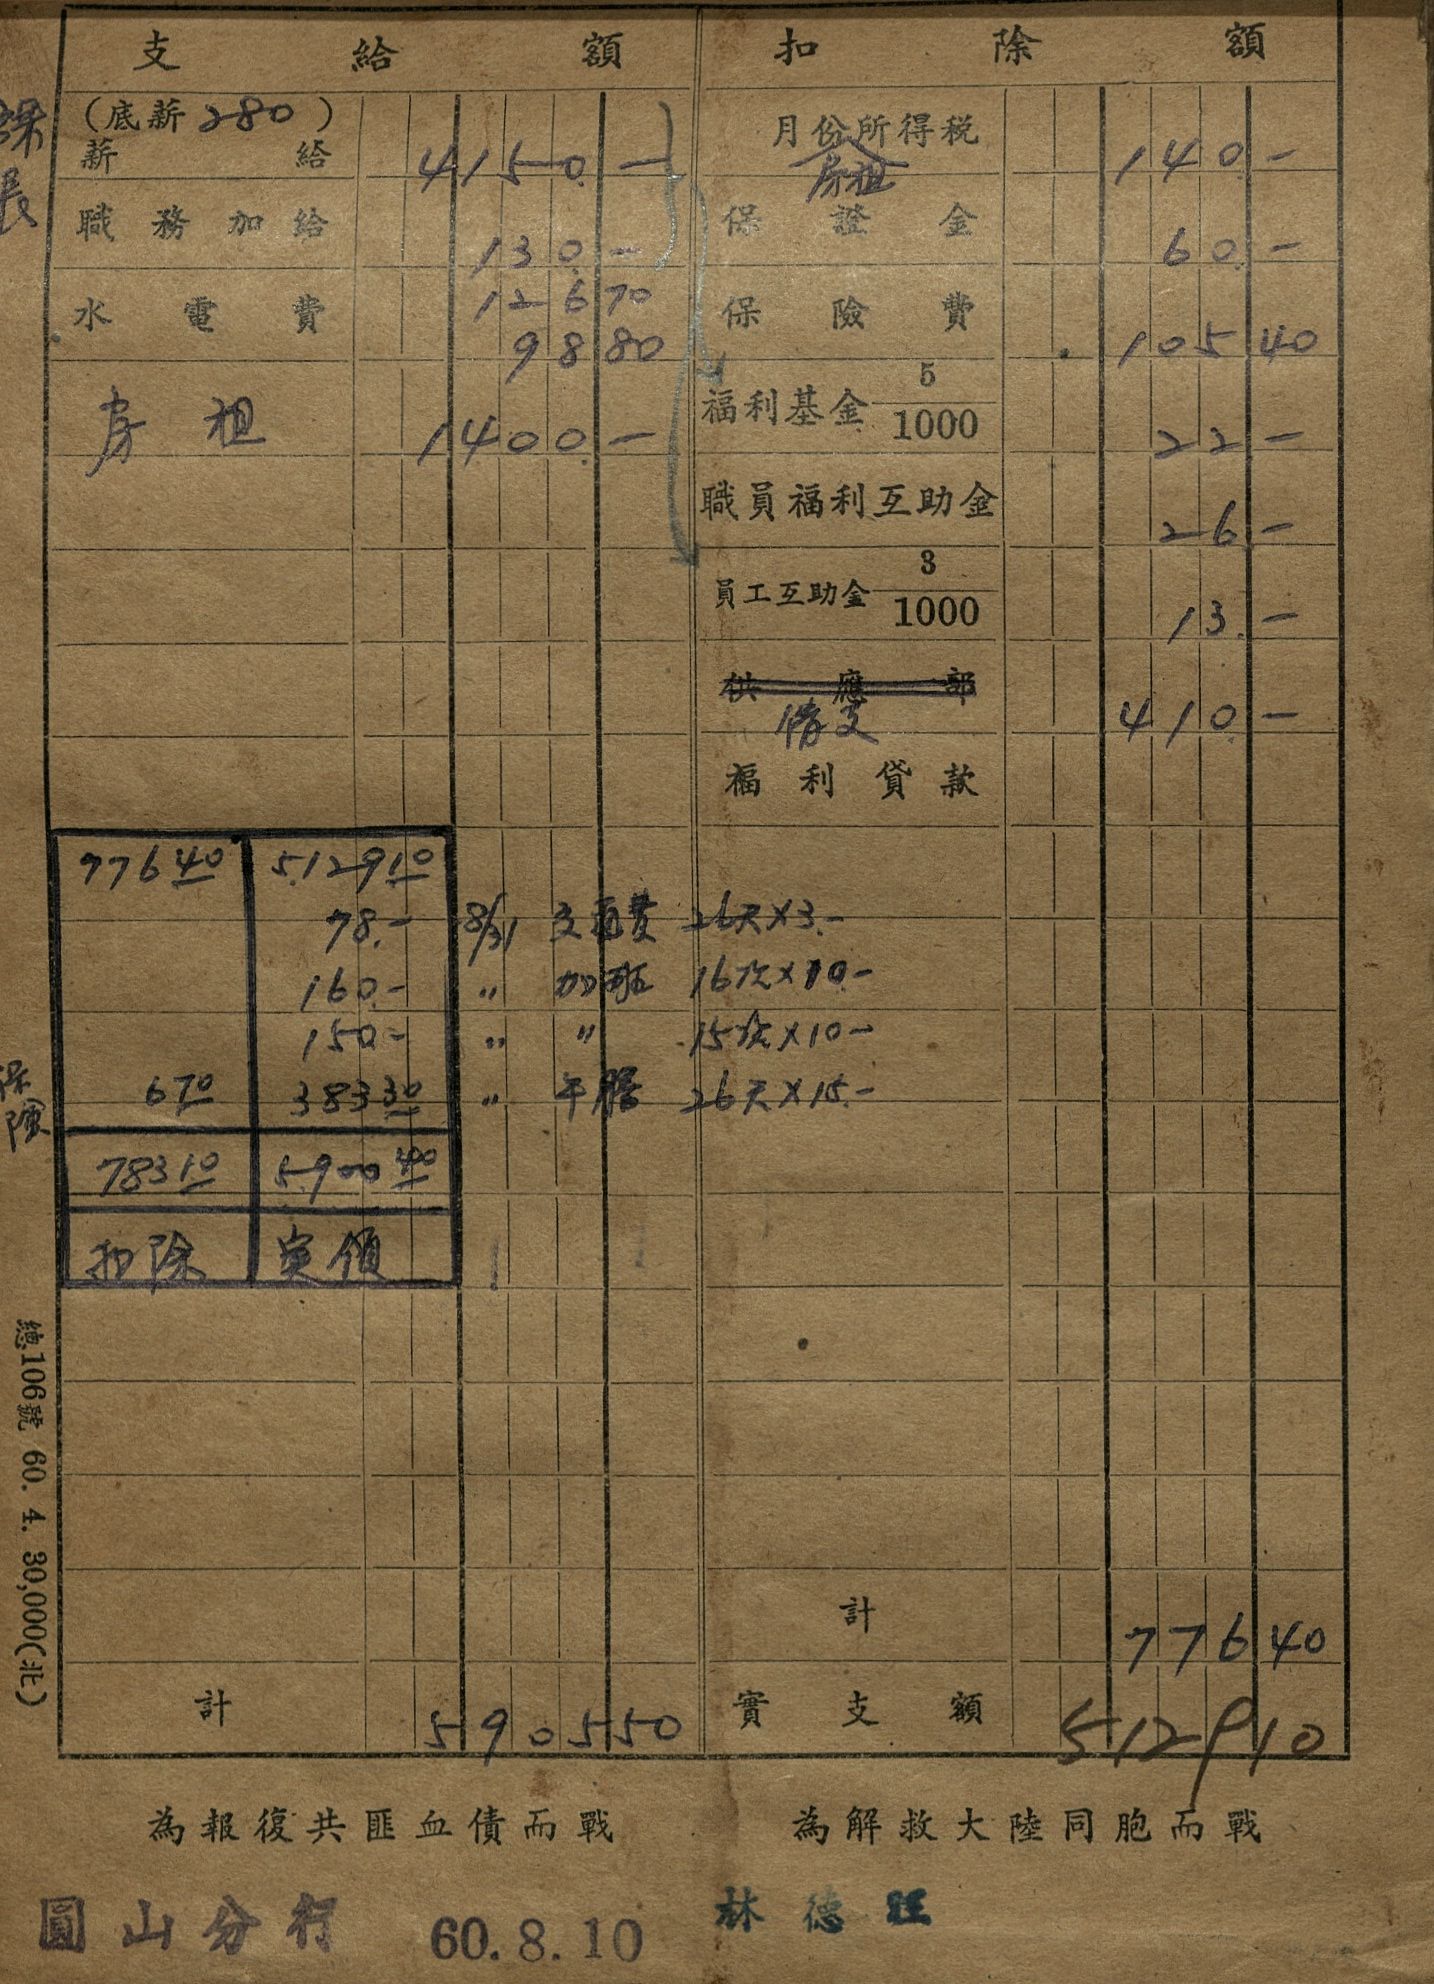 支給額 扣除額
課長
(底薪280)
薪給 4150.-
月份所得税 140.-
房租
職務加給 130.-
保證金 60.-
水電費 126 70
98 80
保險費 105 40
房租 1400.-
福利基金 5/1000 22-
職員福利互助金 26-
員工互助金 3/1000 13.-
供應部
借支 410.-
福利貸款
776 40 5,129 10
78.- 8/31 交通費 26天×3.-
160.- 〃 加班 16次×10.-
150.- 〃 〃 15次×10-
保險
6 70 383 30 〃 午膳 26天×15.-
783 10 5,900 40
扣除 実領
總106號 60. 4. 30,000(北)
計 776 40
計 5905 50
實支額 5129 10
為報復共匪血債而戰 為解救大陸同胞而戰
圓山分行 60.8.10 林德旺